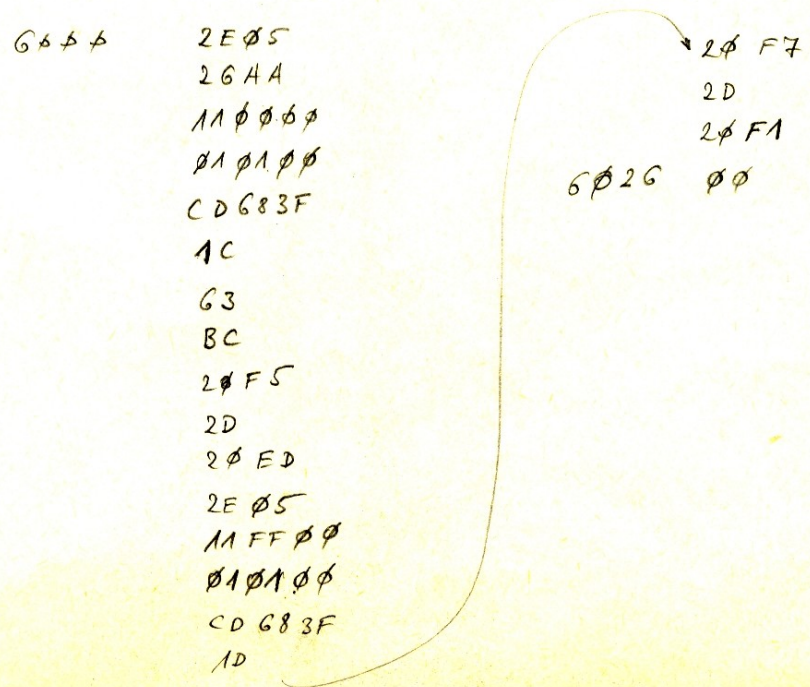 6ØØØ 2EØ5
26AA
11ØØØØ
Ø1Ø1ØØ
CD683F
1C
63
BC
2ØF5
2D
2ØED
2EØ5
11FFØØ
Ø1Ø1ØØ
CD683F
1D
2ØF7
2D
2ØF1
6Ø26 ØØ